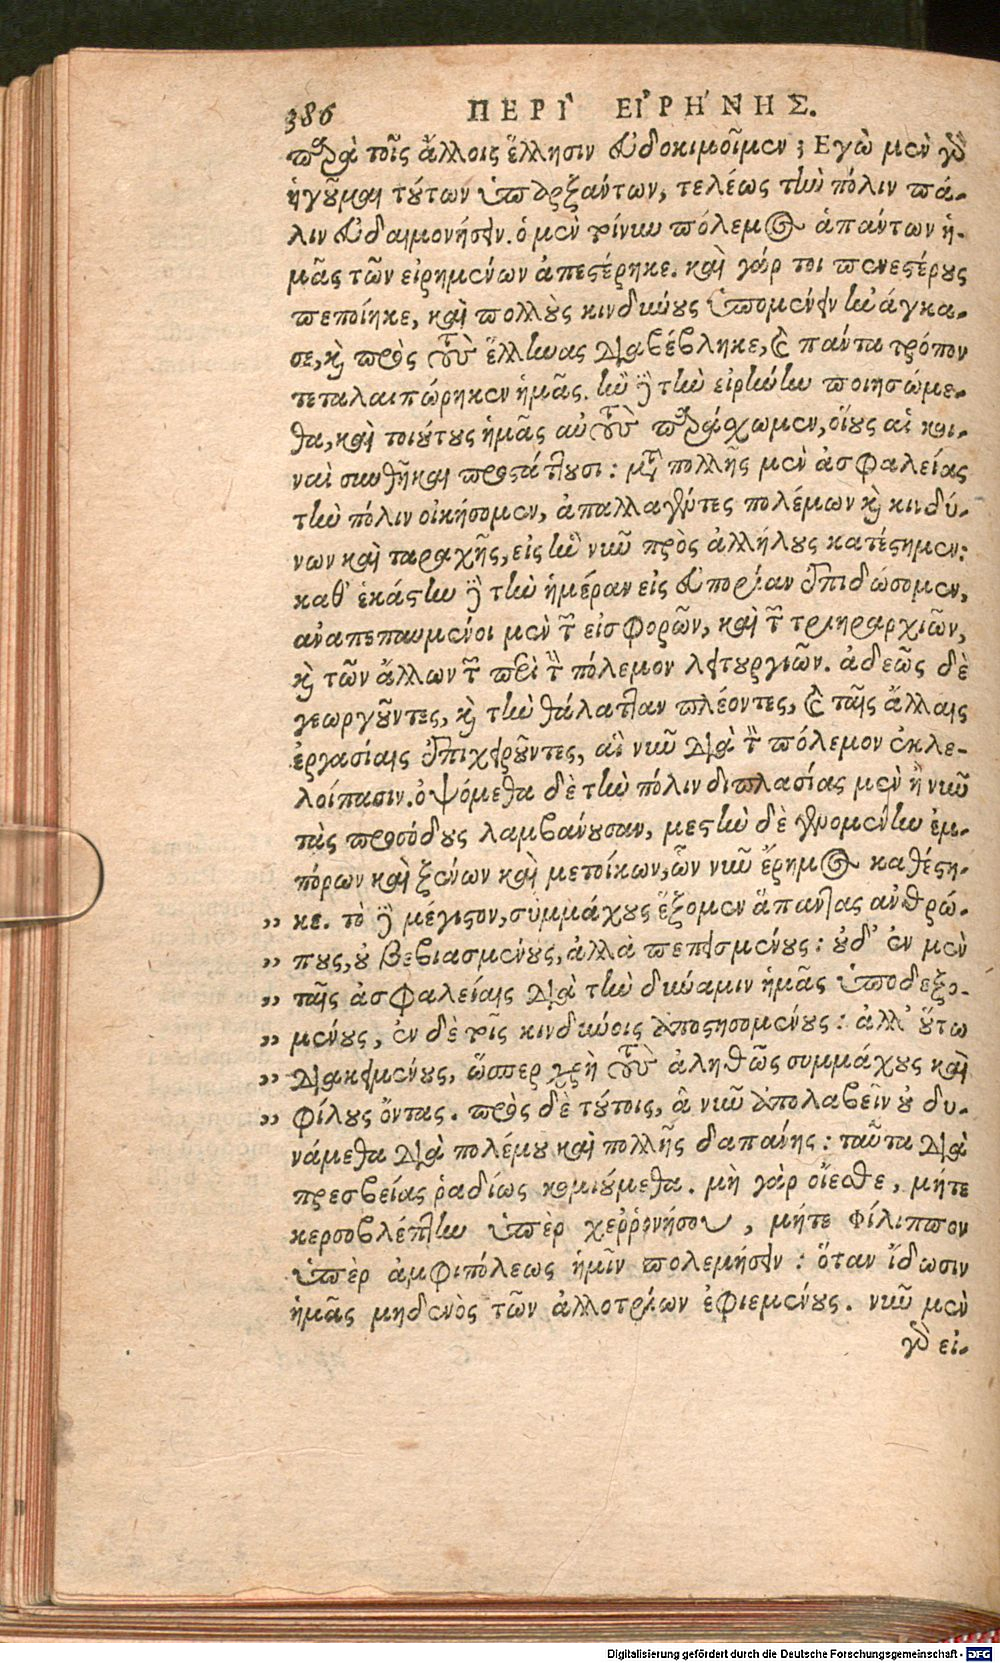 386 ΠΕΡΙ` ΕΙ'ΡΗ'ΝΗΣ.
παρὰ τοῖς ἄλλοις ἕλλησιν εὐδοκιμοῖμεν; Εγὼ μὲν γὰρ
ἡγοῦμαι τούτων ὑπαρξάντων, τελέως τὴν πόλιν πά-
λιν εὐδαιμονήσειν. ὁ μὲν τοίνυν πόλεμος ἁπάντων ἡ-
μᾶς τῶν εἰρημένων ἀπεστέρηκε. καὶ γάρ τοι πενεστέρους
πεποίηκε, καὶ πολλοὺς κινδύνους ὑπομένειν ἠνάγκα-
σε, καὶ πρὸς τοὺς ἕλληνας διαβέβληκε, καὶ πάντα τρόπον
τεταλαιπώρηκεν ἡμᾶς. ἢν δὲ τὴν εἰρήνην ποιησώμε-
θα, καὶ τοιούτους ἡμᾶς αὐτοὺς παράσχωμεν, οἵους αἱ κοι-
ναὶ συνθῆκαι προστάττουσι: μετὰ πολλῆς μὲν ἀσφαλείας
τὴν πόλιν οἰκήσομεν, ἀπαλλαγέντες πολέμων καὶ κινδύ-
νων καὶ ταραχῆς, εἰς ἣν νῦν πρὸς ἀλλήλους κατέστημεν:
καθ' ἑκάστην δὲ τὴν ἡμέραν εἰς εὐπορίαν ἐπιδώσομεν,
ἀναπεπαυμένοι μὲν τῶν εἰσφορῶν, καὶ τῶν τριηραρχιῶν,
καὶ τῶν ἄλλων τῶν περὶ τὸν πόλεμον λειτουργιῶν. ἀδεῶς δὲ
γεωργοῦντες, καὶ τὴν θάλατταν πλέοντες, καὶ ταῖς ἄλλαις
ἐργασίαις ἐπιχειροῦντες, αἳ νῦν διὰ τὸν πόλεμον ἐκλε-
λοίπασιν. ὀψόμεθα δὲ τὴν πόλιν διπλασίας μὲν ἢ νῦν
τὰς προσόδους λαμβάνουσαν, μεστὴν δὲ γενομένην ἐμ-
πόρων καὶ ξένων καὶ μετοίκων, ὧν νῦν ἔρημος καθέστη-
„ κε. τὸ δὲ μέγιστον, συμμάχους ἕξομεν ἅπαντας ἀνθρώ-
„ πους, οὐ βεβιασμένους, ἀλλὰ πεπεισμένους: οὐδ' ἐν μὲν
„ ταῖς ἀσφαλείαις διὰ τὴν δύναμιν ἡμᾶς ὑποδεξο-
„ μένους, ἐν δὲ τοῖς κινδύνοις ἀποστησομένους: ἀλλ' οὕτω
„ διακειμένους, ὥσπερ χρὴ τοὺς ἀληθῶς συμμάχους καὶ
„ φίλους ὄντας. πρὸς δὲ τούτοις, ἃ νῦν ἀπολαβεῖν οὐ δυ-
νάμεθα διὰ πολέμου καὶ πολλῆς δαπάνης: ταῦτα διὰ
πρεσβείας ῥᾳδίως κομιούμεθα. μὴ γὰρ οἴεσθε, μήτε
κερσοβλέπτην ὑπὲρ χερρονήσου, μήτε φίλιππον
ὑπὲρ ἀμφιπόλεως ἡμῖν πολεμήσειν: ὅταν ἴδωσιν
ἡμᾶς μηδενὸς τῶν ἀλλοτρίων ἐφιεμένους. νῦν μὲν
γὰρ εἰ-
Digitalisierung gefördert durch die Deutsche Forschungsgemeinschaft - DFG